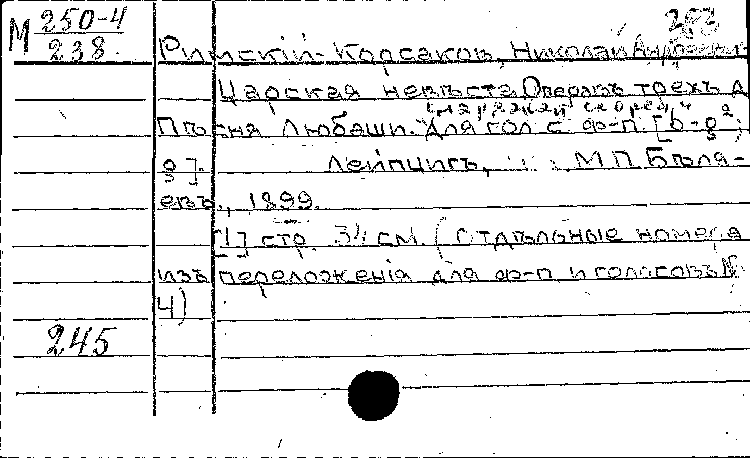 М 250-4
238.
253
Римскій-Корсаков, Николай Андреевич
Царская невѣста. Опера въ трехъ д
„Снаряжай скорей,"
Пѣсня Любаши. Для гол. с ф-п. [b-g²;
g].
Лейпцигъ, М.П. Бѣля-
евъ, 1899.
[1] стр. 34 см. (Отдѣльные номера
изъ переложенія для ф-п и голосовъ №
4)
245